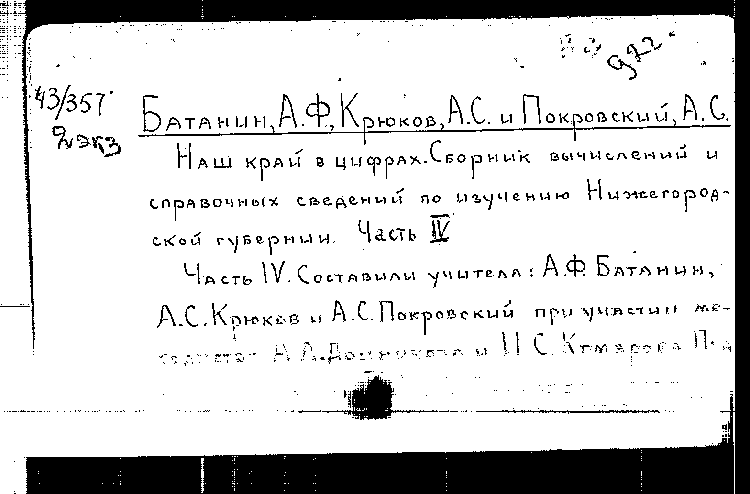 922
43/357
2 экз
Батанин, А.Ф., Крюков, А.С. и Покровский, А.С.
Наш край в цифрах. Сборник вычислений и
справочных сведений по изучению Нижегород-
ской губернии. Часть IV
Часть IV. Составили учителя: А.Ф. Батанин,
А.С. Крюков и А.С. Покровский при участии ме-
А.А. и С. Комарова